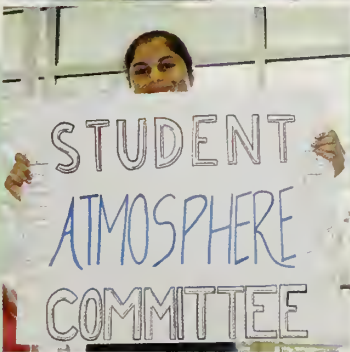 STUDENT
ATMOSPHERE
COMMITTEE